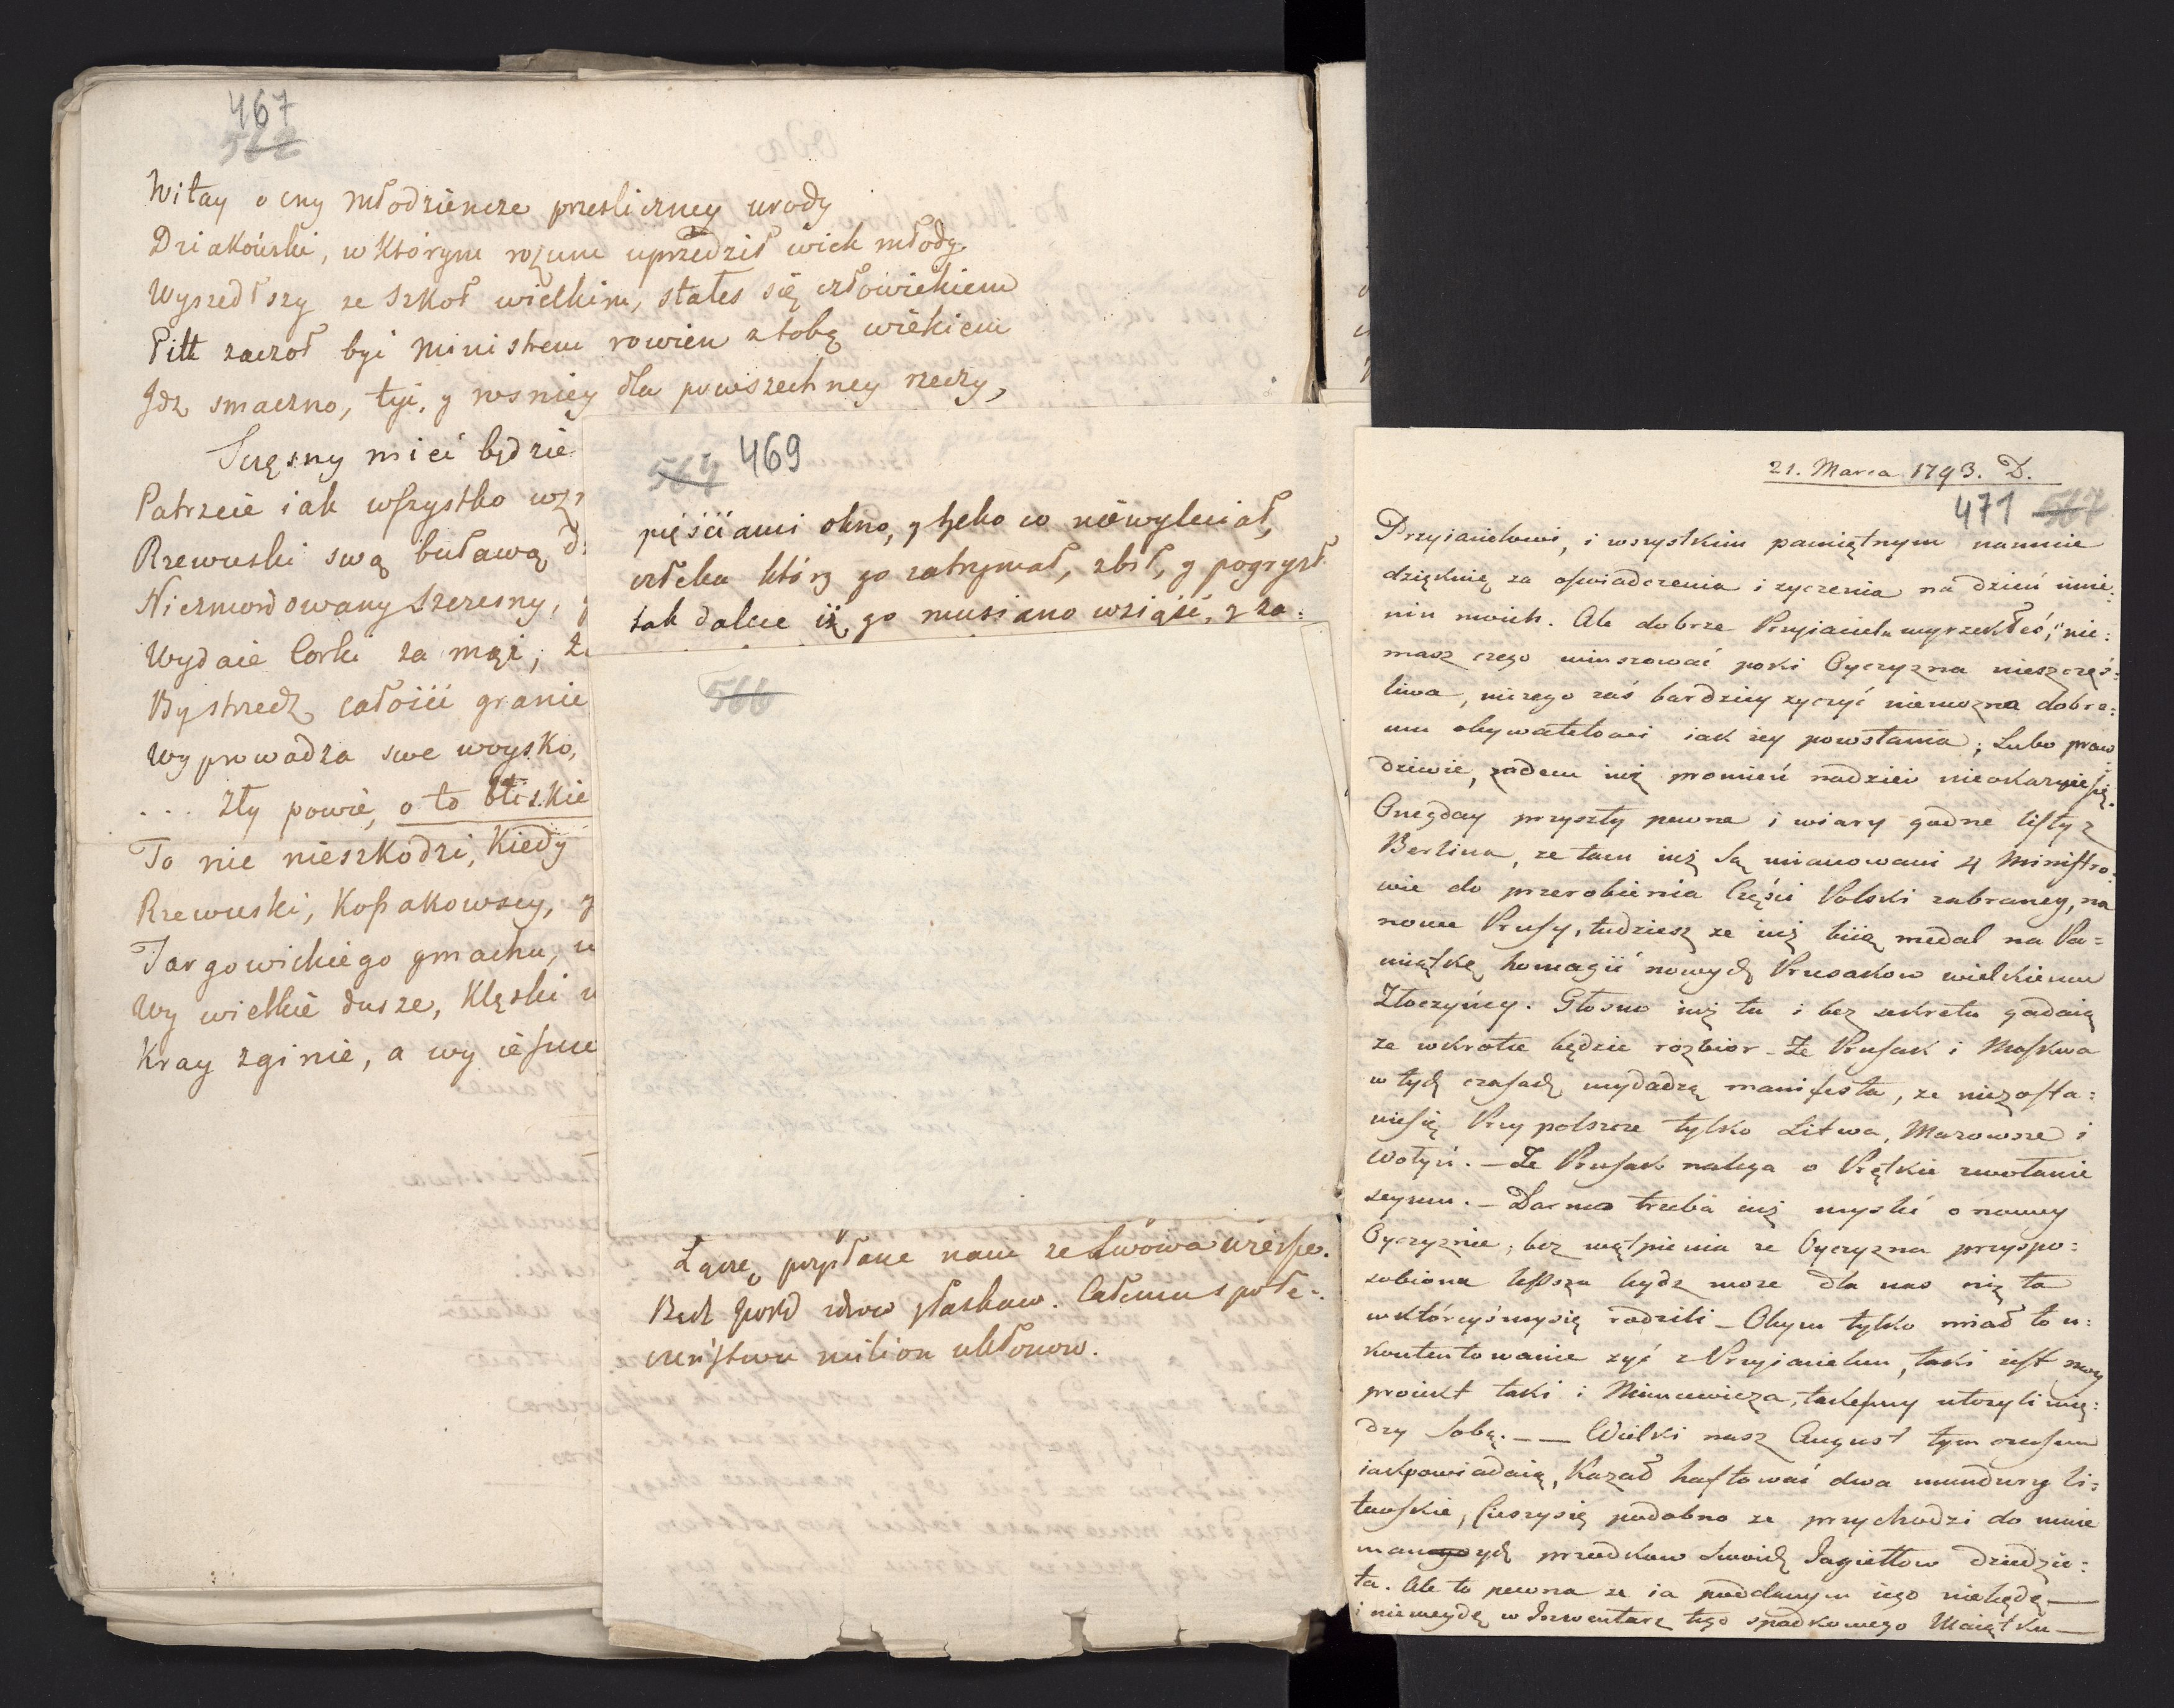 467
562
Witay o cny młodziencze presliczney urody
Dziakoński, w którym rozum uprzedził wiek młody
Wyszedłszy ze szkoł wielkim, stałes się człowiekiem
Pitt zaczoł być Ministrem rowien z tobą wiekiem
Jdz smaczno, tyi, y rosniey dla powszechney rzeczy,
Patrzcie iak wszystko
Rzewuski swą buławą
Niezmordowany Szczesny,
Wydaie Corki za mąż,
Bystrzedz całości granic
Wyprowadza swe woysko,
... Zły powie, o to bliskie
To nie nieszkodzi, Kiedy
Rzewuski, Kossakowscy, y
Targowickiego gmachu,
Wy wielkie dusze, Klęski
Kray zginie, a wy
564 469
pięściami okno, y tylko co niewyleciał,
człeka który go zatrzymał, zbił, y pogryzł
tak dalece iż go musiano wziąść, y za=
566
Łączę przysłane nam ze Lwowa
Bądz zdrow y łaskaw. Całemu społe=
czeństwu milion ukłonow.
21. Marca 1793. D.
471 567
Przyiacielowi, i wszystkim pamiętnym namnie
dziękuię za oswiadczenia i zyczenia na dzień imie:
nin moich. Ale dobrze Przyiacielu wyrzekłeś, "nie:
masz czego winszować poki Oyczyzna nieszczęś:
liwa, niczego zaś bardziey zyczyć niemozna dobre:
mu obywatelowi iak iey powstania; Lubo praw:
dziwie, zaden iuż promień nadziei nieokazuie się.
Onegday przyszły pewne i wiary godne listy z
Berlina, ze tam iuż są mianowani 4 Ministro:
wie do przerobienia Części Polski zabraney, na
nowe Prusy, tudziesz ze iuż biią medal na Pa=
miątkę homagii nowych Prusakow wielkiemu
Złoczyńcy. Głosno iuż tu i bez sekretu gadaią
ze wkrotce będzie rozbior_ Ze Prusak i Moskwa
w tych czasach wydadzą manifesta, ze niezosta:
niesię Przy polszcze tylko Litwa, Mazowsze i
Wołyń._ Ze Prusak nalega o Prętkie zwołanie
seymu._ Darmo trzeba iuż myslić o nowey
Oyczyznie, bez wątpienia ze Oyczyzna przyspo:
sobiona lepsza bydz moze dla nas niż ta
w ktoreyśmysię rodzili_ Obym tylko miał to u:
kontentowanie zyć z Przyiacielem, taki iest moy
proiekt taki i Niemcewicza, takeśmy ułozyli mię:
dzy sobą.__ Wielki nasz August tym czasem
iakpowiadaią, Kazał haftować dwa mundury li:
tewskie, Cieszysię podobno ze przychodzi do
przodkow swoich Jagiełłow dziedzic:
ta. Ale to pewna ze ia poddanym iego niebędę_
i nieweydę w Inwentarz tego spadkowego Maiątku_